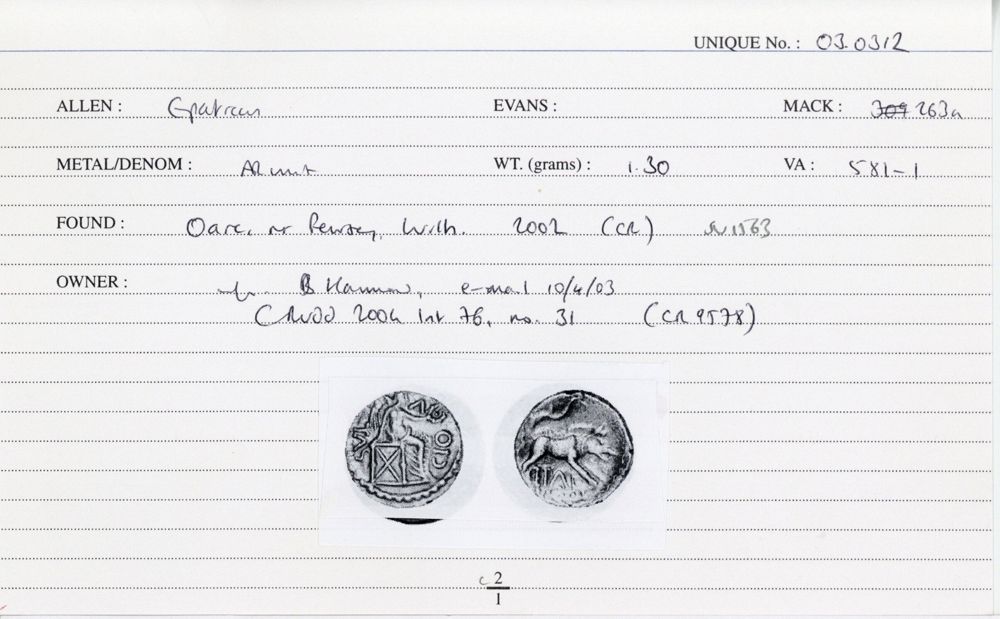 UNIQUE No. : 03.0312
ALLEN : Epaticcus EVANS : MACK : 309 263a
METAL/DENOM : AR unit WT. (grams) : 1.30 VA : 581-1
FOUND : Oare, nr Pewsey, Wilts. 2002 (CR)
OWNER : B e-mail 10/4/03
2004 lot 76, no. 31 (CR 9578)
2
1